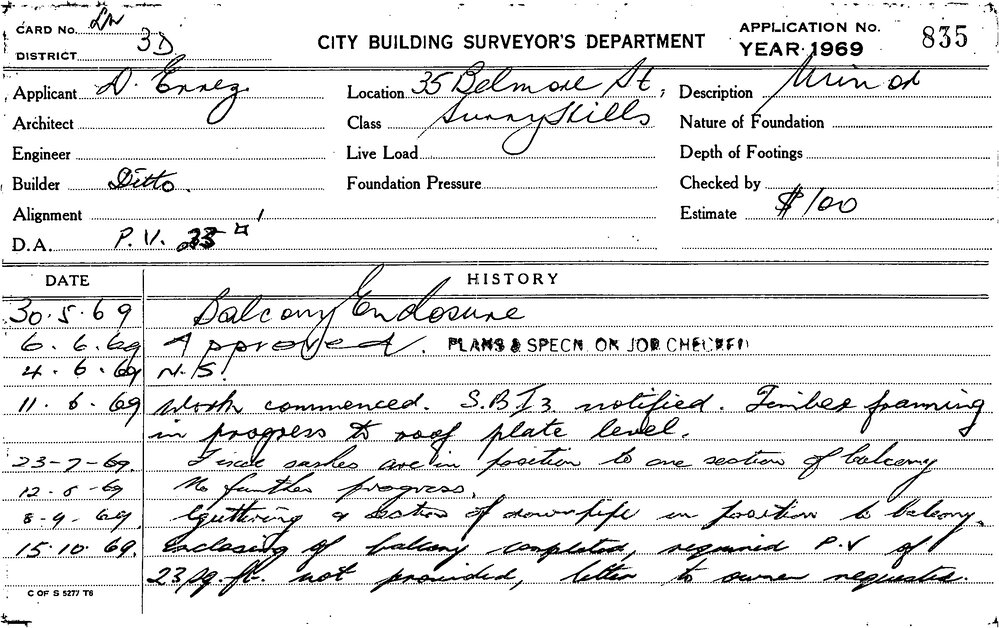 CARD No. LN
DISTRICT 3D
CITY BUILDING SURVEYOR'S DEPARTMENT
APPLICATION No.
YEAR 1969
835
Applicant D. Ennez
Location 35 Belmore St,
Description Minor
Architect
Class Surry Hills
Nature of Foundation
Engineer
Live Load
Depth of Footings
Builder Ditto.
Foundation Pressure
Checked by
Alignment
Estimate $100
D.A. P.V. 23
DATE
HISTORY
30.5.69 Balcony Enclosure
6.6.69 Approved. PLANS & SPECN. ON JOB CHECKED
4.6.69 N.S!
11.6.69 Work commenced. S.B.I 3. notified. Timber framing
in progress to roof plate level.
23-7-69. sashes are in position to one section of balcony
12.8-69 No further progress.
8-9.69. Guttering & section of downpipe in position to balcony.
15.10.69. Enclosing of balcony completed, required P.V of
23 sq. ft. not provided, letter to owner requested.
C OF S 5277 T6